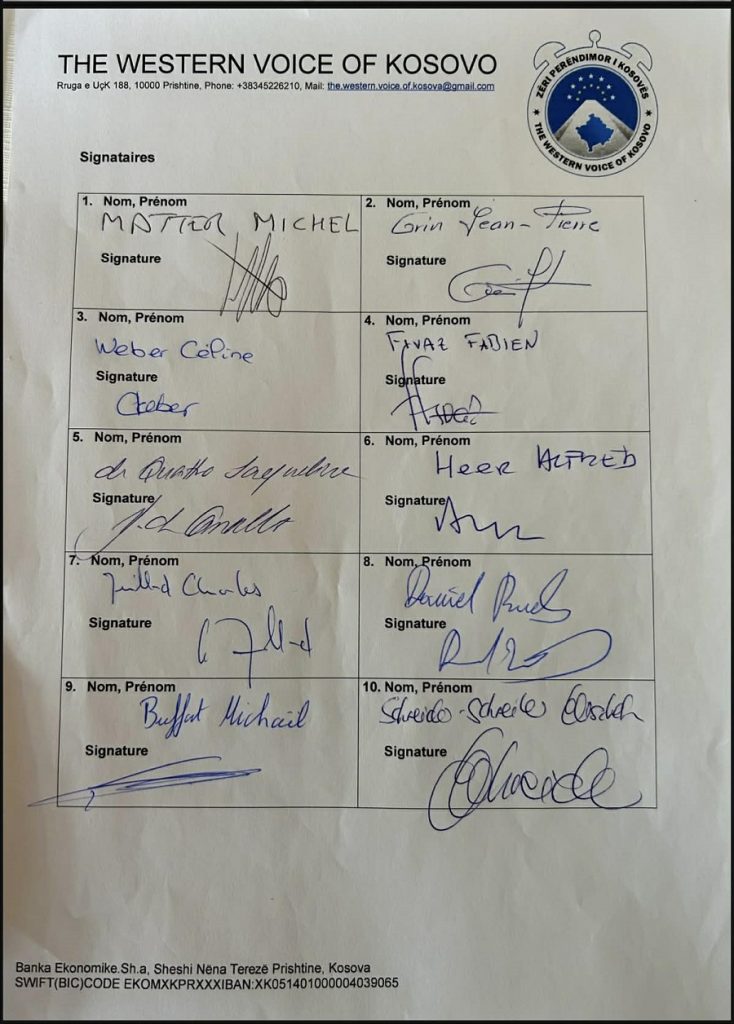 THE WESTERN VOICE OF KOSOVO
Rruga e UçK 188, 10000 Prishtine, Phone: +38345226210, Mail: the.western.voice.of.kosova@gmail.com
ZËRI PERËNDIMOR I KOSOVËS
THE WESTERN VOICE OF KOSOVO
Signataires
1. Nom, Prénom
MATTER MICHEL
Signature
2. Nom, Prénom
Grin Jean-Pierre
Signature
3. Nom, Prénom
Weber Céline
Signature
Weber
4. Nom, Prénom
FIVAZ FABIEN
Signature
5. Nom, Prénom
de Quattro Jacqueline
Signature
J. de Quattro
6. Nom, Prénom
HEER ALFRED
Signature
7. Nom, Prénom
Juillard Charles
Signature
8. Nom, Prénom
Daniel Ruch
Signature
9. Nom, Prénom
Buffat Michaël
Signature
10. Nom, Prénom
Schneider-Schneiter Elisabeth
Signature
Banka Ekonomike.Sh.a, Sheshi Nëna Terezë Prishtine, Kosova
SWIFT(BIC)CODE EKOMXKPRXXXIBAN:XK051401000004039065